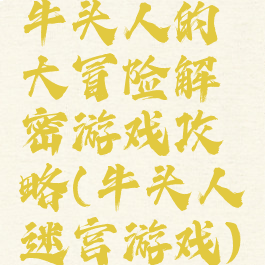 牛头人的
大冒险解
密游戏攻
略(牛头人
迷宫游戏)